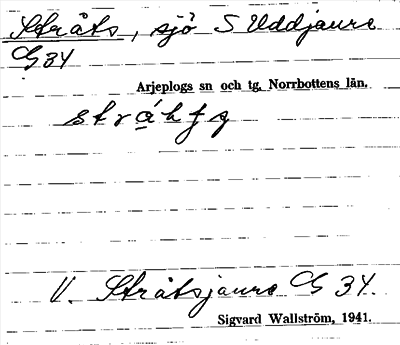 Stråts, sjö S Uddjaure
G 34
Arjeplogs sn och tg, Norrbottens län.
V. Stråtsjaure G 34.
Sigvard Wallström, 1941.